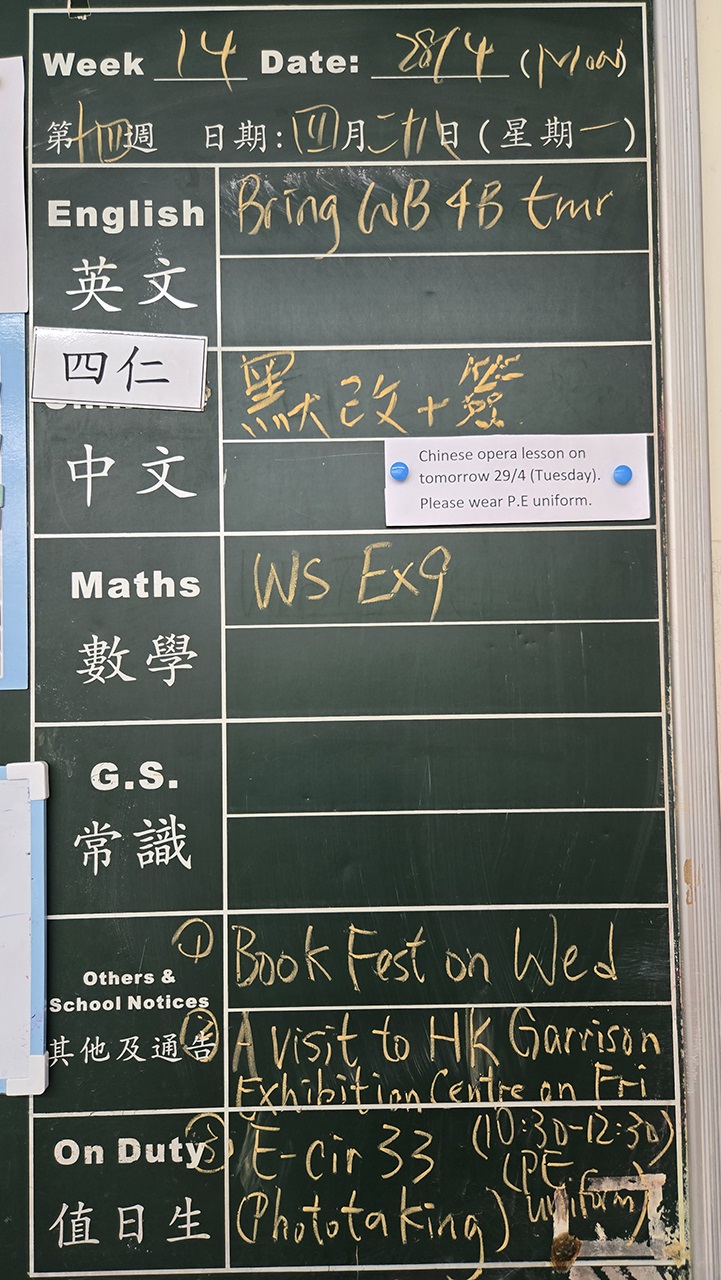 Week 14 Date: 28/4 (Mon)
第十四週 日期:四月二十八日(星期一)
English
英文
Bring WB 4B tmr
四仁
中文
默改+簽
Chinese opera lesson on
tomorrow 29/4 (Tuesday).
Please wear P.E uniform.
Maths
數學
WS Ex9
G.S.
常識
Others &
School Notices
其他及通告
① Book Fest on Wed
② A visit to HK Garrison
Exhibition Centre on Fri
(10:30-12:30)
(PE
uniform)
On Duty
值日生
③ E-cir 33
(Phototaking)